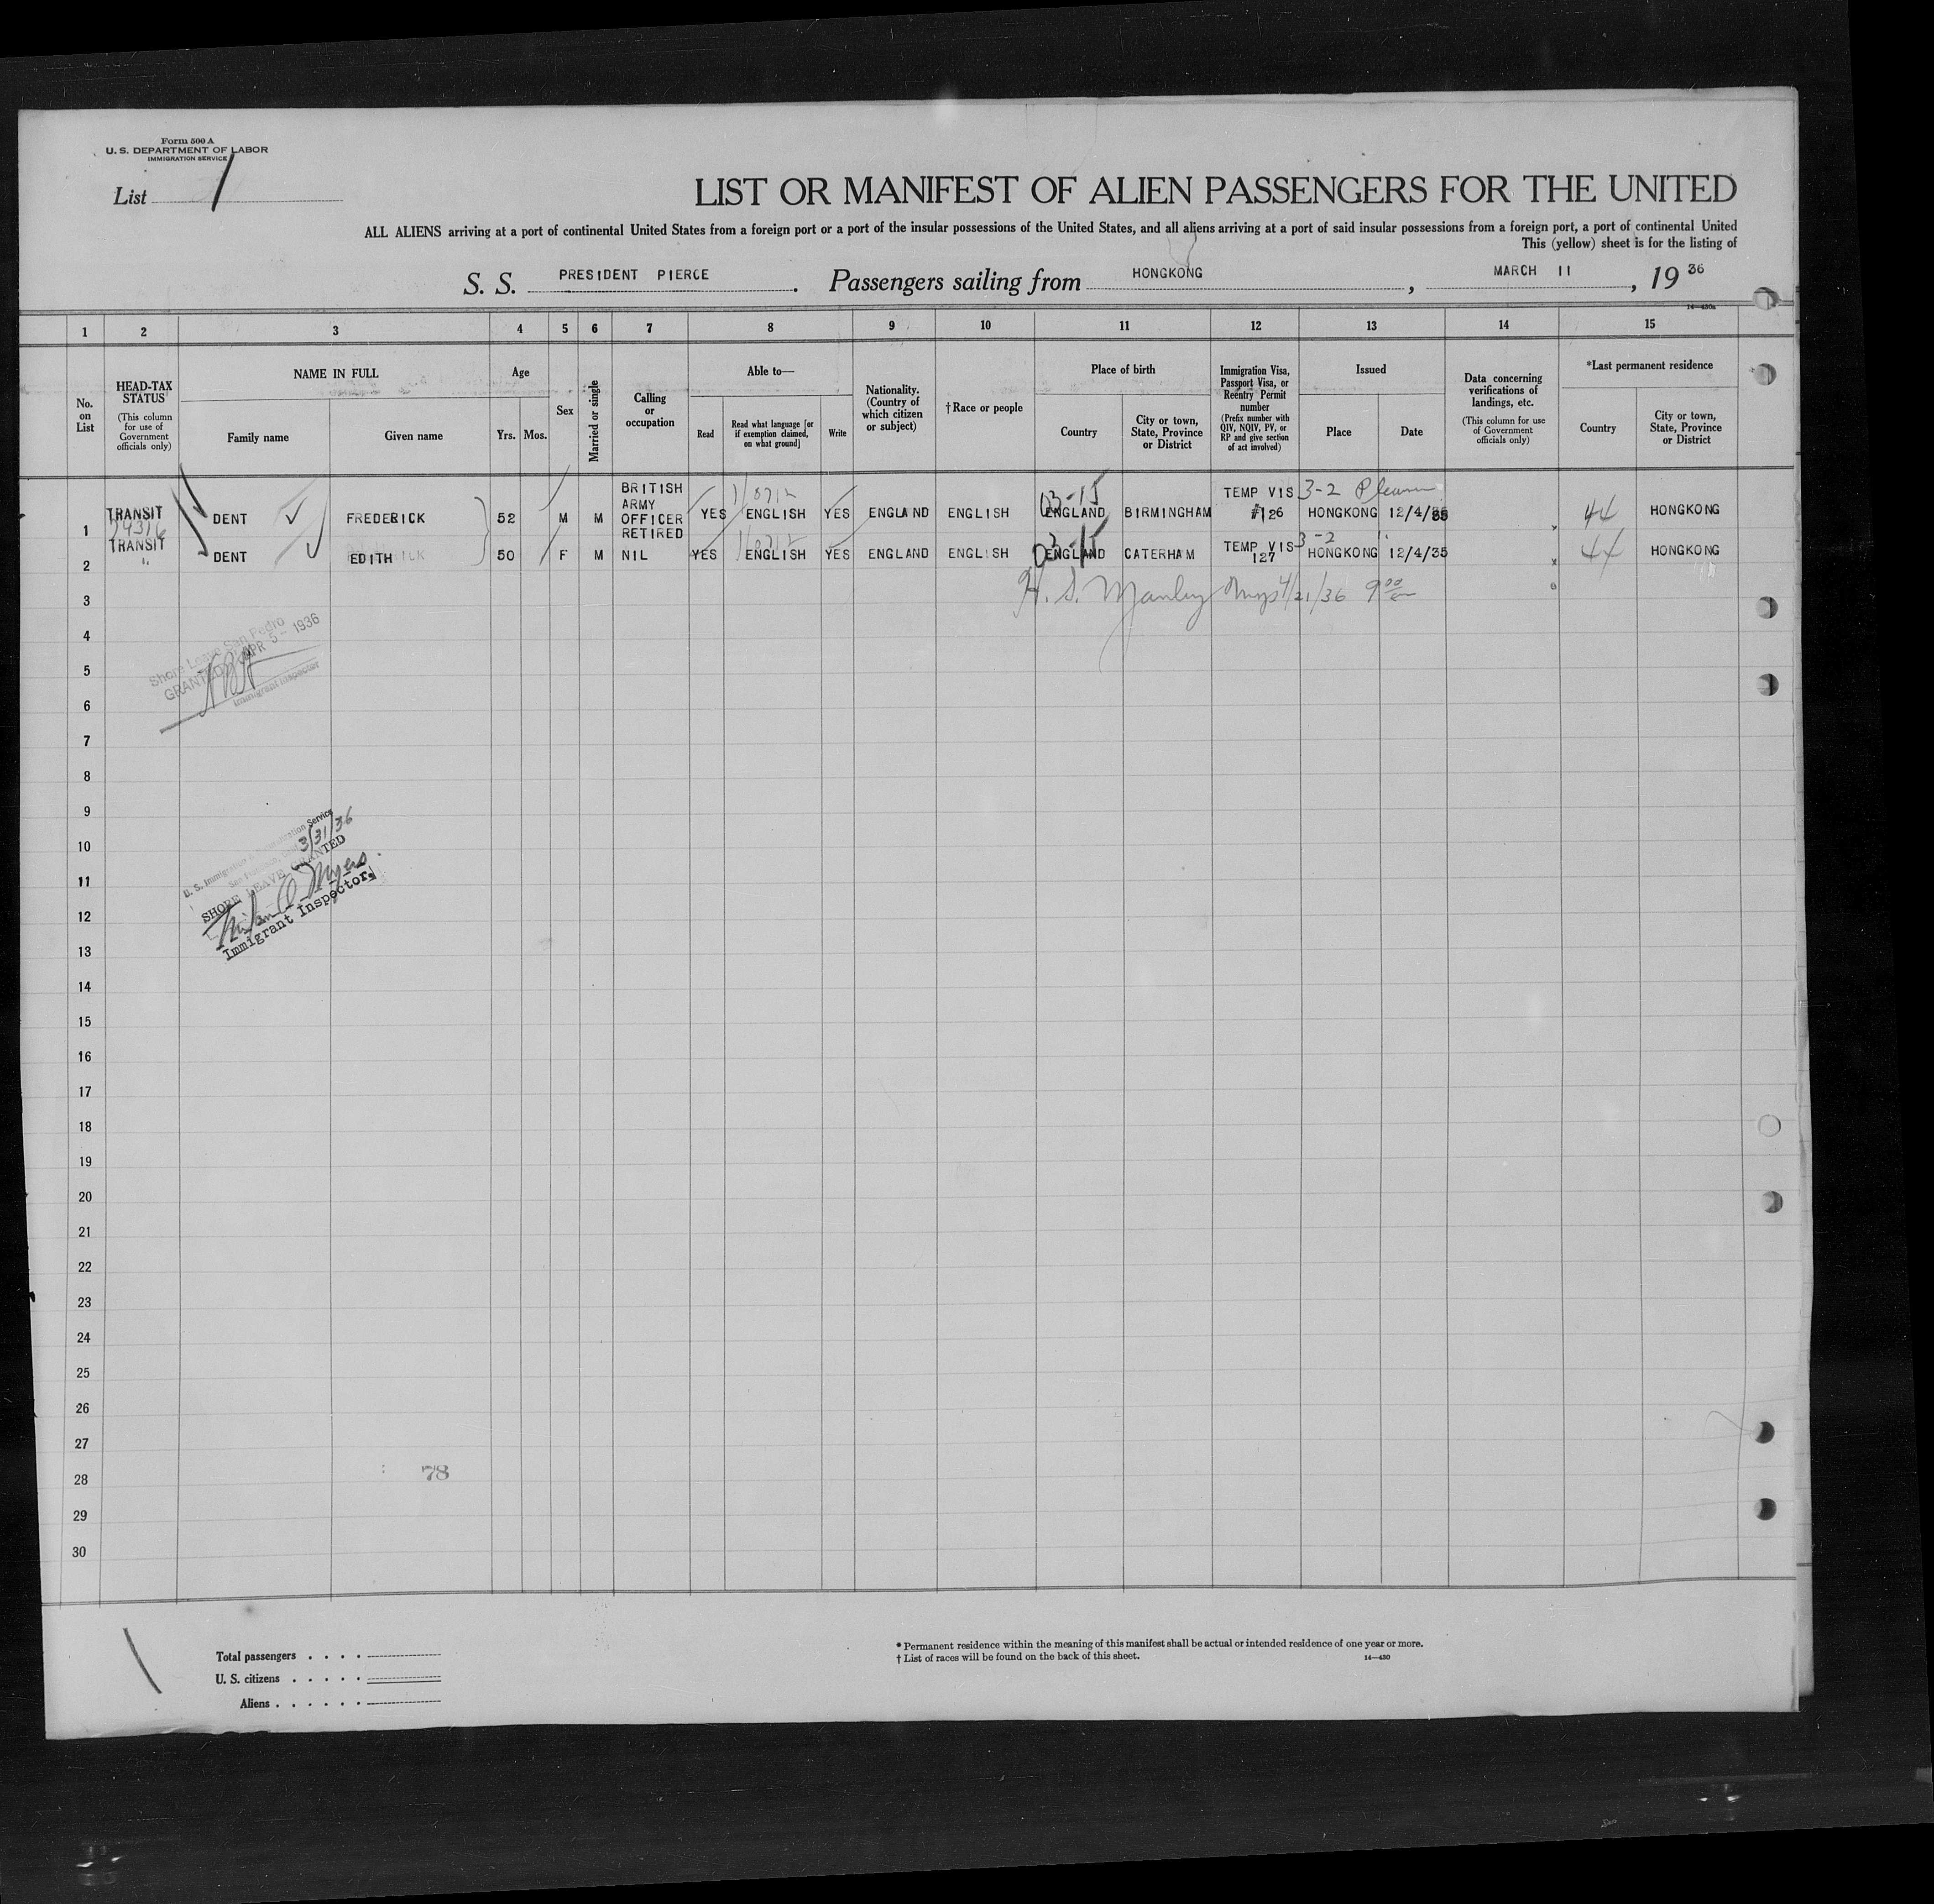 Form 500 A
U. S. DEPARTMENT OF LABOR
IMMIGRATION SERVICE
List 1
LIST OR MANIFEST OF ALIEN PASSENGERS FOR THE UNITED
ALL ALIENS arriving at a port of continental United States from a foreign port or a port of the insular possessions of the United States, and all aliens arriving at a port of said insular possessions from a foreign port, a port of continental United
This (yellow) sheet is for the listing of
S. S. PRESIDENT PIERCE. Passengers sailing from HONGKONG, MARCH 11, 19 36
14—430a
1 2 3 4 5 6 7 8 9 10 11 12 13 14 15
No. on List
HEAD-TAX STATUS
(This column for use of Government officials only)
NAME IN FULL
Family name
Given name
Age
Yrs. Mos.
Sex
Married or single
Calling or occupation
Able to—
Read
Read what language [or if exemption claimed, on what ground]
Write
Nationality. (Country of which citizen or subject)
†Race or people
Place of birth
Country
City or town, State, Province or District
Immigration Visa, Passport Visa, or Reentry Permit number
(Prefix number with QIV, NQIV, PV, or RP and give section of act involved)
Issued
Place
Date
Data concerning verifications of landings, etc.
(This column for use of Government officials only)
*Last permanent residence
Country
City or town, State, Province or District
1 TRANSIT DENT FREDERICK 52 M M BRITISH ARMY OFFICER RETIRED YES ENGLISH YES ENGLAND ENGLISH ENGLAND BIRMINGHAM TEMP VIS #126 3-2 HONGKONG 12/4/35 44 HONGKONG
2 TRANSIT DENT EDITH 50 F M NIL YES ENGLISH YES ENGLAND ENGLISH ENGLAND CATERHAM TEMP VIS 127 3-2 HONGKONG 12/4/35 44 HONGKONG
3
H. S. Manley 4/21/36 9 00
4
Shore Leave San Pedro
GRANTED APR 5 - 1936
Immigrant Inspector
5
6
7
8
9
10
U. S. Immigration Service
3/31/36
SHORE LEAVE GRANTED
11
Myers
Immigrant Inspector.
12
13
14
15
16
17
18
19
20
21
22
23
24
25
26
27
28
78
29
30
Total passengers
U. S. citizens
Aliens
* Permanent residence within the meaning of this manifest shall be actual or intended residence of one year or more.
† List of races will be found on the back of this sheet.
14—430